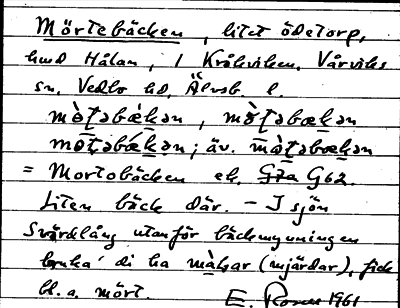 Mörtebäcken, litet ödetorp,
hmd Hålan, i Kråkviken, Vårviks
sn, Vedbo hd, Älvsb. l.
mø̀ʈəbækən, mø̀ʈəbækən
møʈəbækən; äv. màʈəbækən
= Mortobäcken ek. G62.
Liten bäck där. – I sjön
Svärdlång utanför bäckmynningen
bruka' di ha màkar (mjärdar), fick
bl. a. mört. E. Rosen 1961